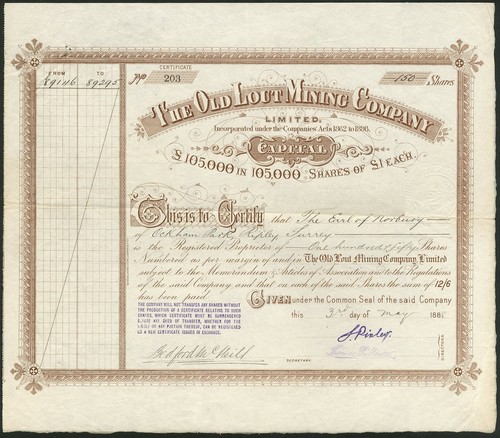 FROM TO
89146 89295
CERTIFICATE
No 203
150 Shares
THE OLD LOUT MINING COMPANY
LIMITED.
Incorporated under the Companies' Acts 1862 to 1886.
CAPITAL
£105,000 IN 105,000 SHARES OF £1 EACH.
This is to Certify that The Earl of
of Ockham Park, Ripley, Surrey
is the Registered Proprietor of One hundred & fifty Shares
Numbered as per margin of and in The Old Lout Mining Company, Limited
subject to the Memorandum & Articles of Association and to the Regulations
of the said Company and that on each of the said Shares the sum of 12/6
has been paid.
GIVEN under the Common Seal of the said Company
this 3rd day of May 188
THE COMPANY WILL NOT TRANSFER ANY SHARES WITHOUT
THE PRODUCTION OF A CERTIFICATE RELATING TO SUCH
SHARES, WHICH CERTIFICATE MUST BE SURRENDERED
BEFORE ANY DEED OF TRANSFER, WHETHER FOR THE
WHOLE OR ANY PORTION THEREOF, CAN BE REGISTERED
OR A NEW CERTIFICATE ISSUED IN EXCHANGE.
Bedford McNeill
SECRETARY.
DIRECTORS